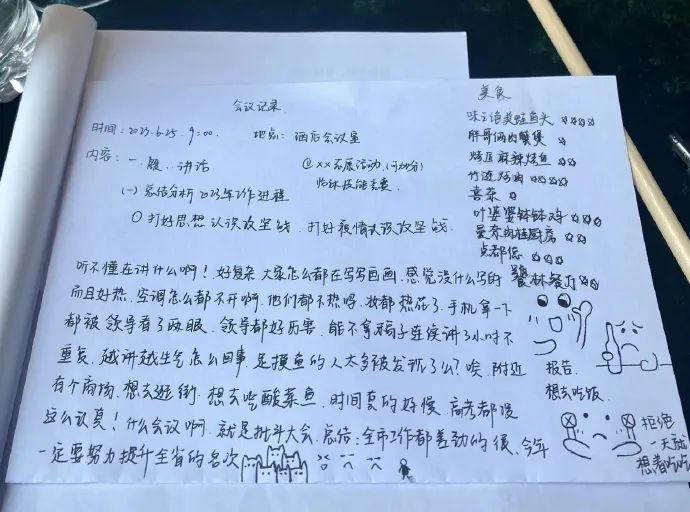 会议记录
时间:2023.6.25. 9:00. 地点: 酒店会议室
内容: 一. 讲话 ② xx开展活动.(可加分)
临床技能竞赛.
(一) 总结分析2023年工作进程
① 打好思想认识攻坚战. 打好疫情认识攻坚战.
听不懂在讲什么啊!. 好复杂 大家怎么都在写写画画. 感觉没什么写的
而且好热. 空调怎么都不开啊. 他们都不热吗. 妆都热花了. 手机拿一下
都被领导看了两眼. 领导都好厉害. 能不拿稿子连续讲了小时不
重复. 越讲越生气怎么回事. 是摸鱼的人太多被发现了么? 唉. 附近
有个商场. 想去逛街. 想去吃酸菜鱼. 时间真的好慢. 高考都没
这么认真! 什么会议啊. 就是批斗大会. 总结: 全市工作都差劲的很. 今年
一定要努力提升全省的名次
美食
美蛙鱼头 ☆☆☆☆
胖哥俩肉蟹煲 ☆☆
烤匠麻辣烤鱼 ☆☆
竹边烤肉 ☆☆☆☆
喜茶 ☆
叶婆婆钵钵鸡 ☆☆☆
曼茶肉桂厨房 ☆☆
点都德 ☆☆
饕林餐厅 ☆☆☆
报告.
想去吃饭.
拒绝
一天就
想着吃吃